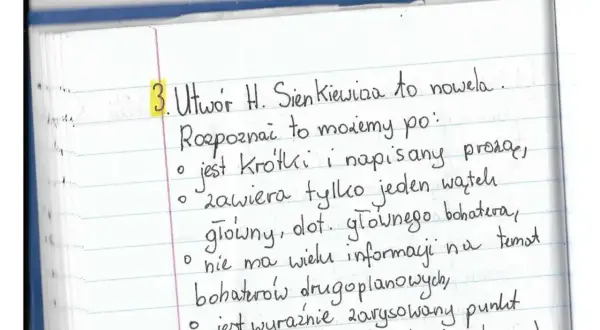 3. Utwór H. Sienkiewicza to nowela.
Rozpoznać to możemy po:
o jest krótki i napisany prozą,
o zawiera tylko jeden wątek
główny, dot. głównego bohatera,
o nie ma wielu informacji na temat
bohaterów drugoplanowych,
o jest wyraźnie zarysowany punkt